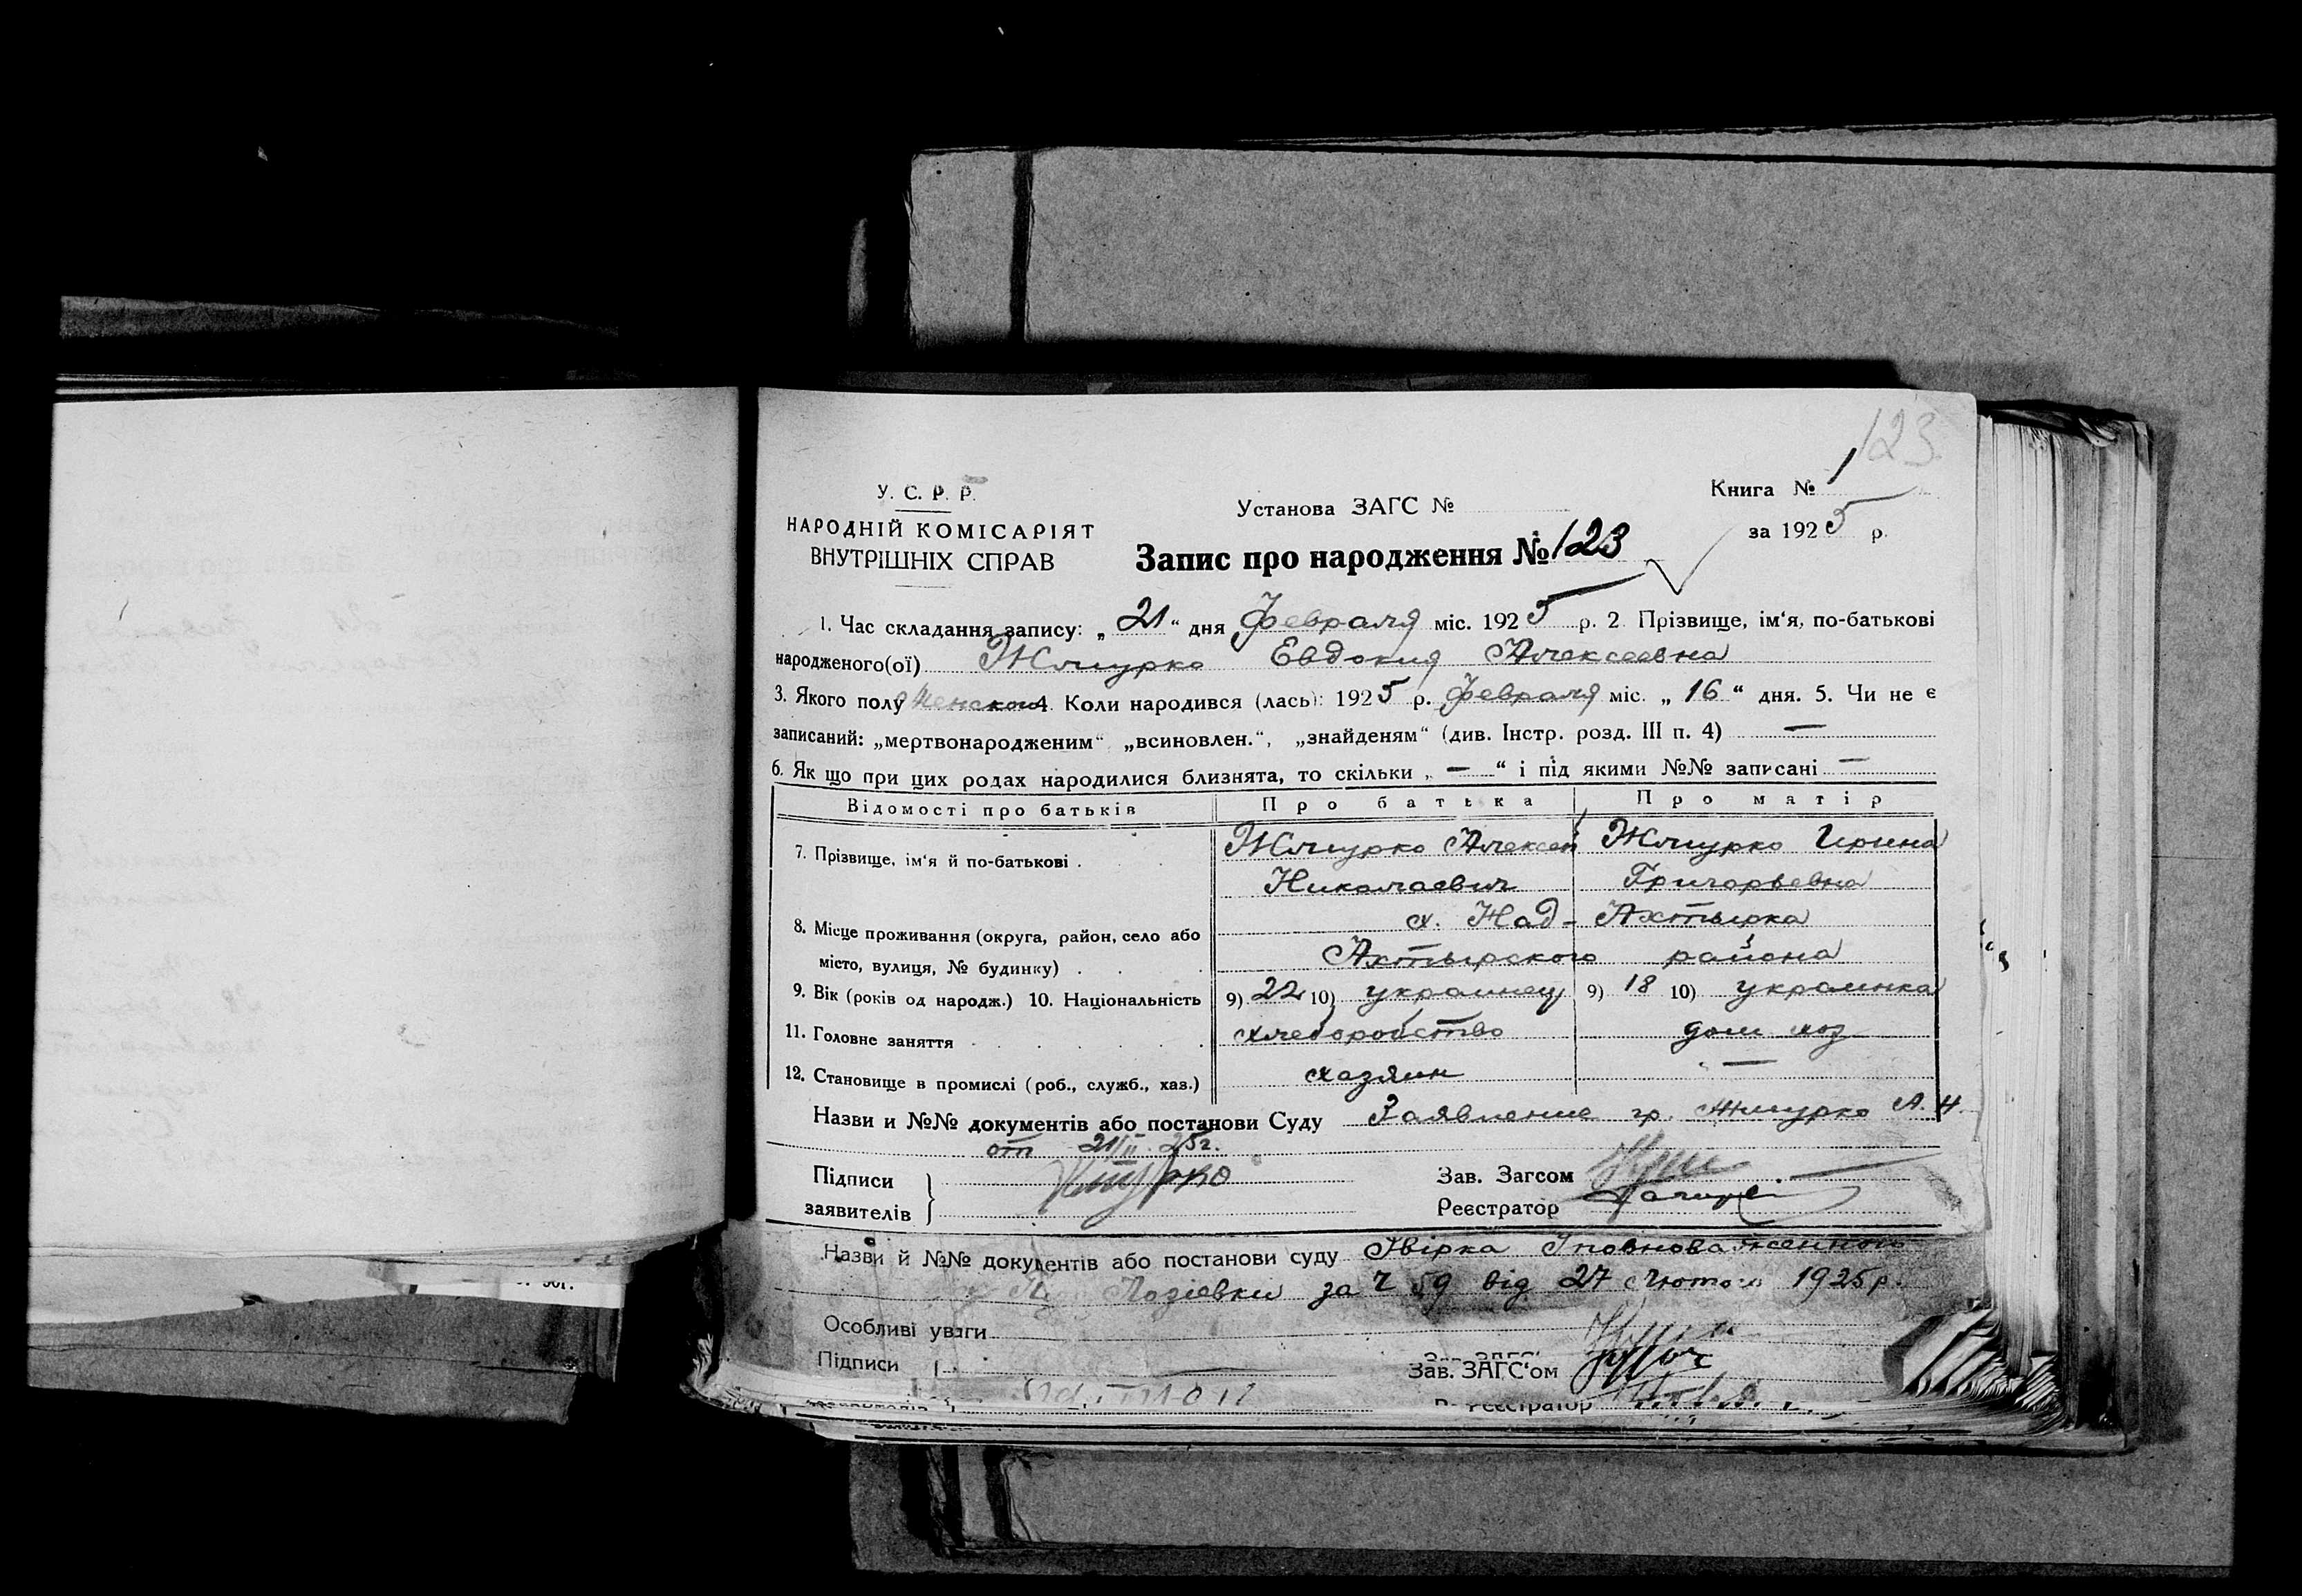 123
У. С. Р. Р.
НАРОДНІЙ КОМІСАРІЯТ
ВНУТРІШНІХ СПРАВ
Установа ЗАГС №
Книга № 1
за 1925 р.
Запис про народження № 123
1. Час складання запису: „21“ дня Февраля міс. 1925 р. 2 Прізвище, ім‘я, по-батькові
народженого(ої) Жмурко Евдокия Алексеевна
3. Якого полу женского 4. Коли народився (лась): 1925 р. февраля міс. „16“ дня. 5. Чи не є
записаний: „мертвонародженим“ „всиновлен.“, „знайденям“ (див. Інстр. розд. III п. 4) —
6. Як що при цих родах народилися близнята, то скільки „—“ і під якими №№ записані —
Відомості про батьків Про батька Про матір
7. Прізвище, ім‘я й по-батькові . Жмурко Алексей Жмурко Ирина
Николаевич Григорьевна
х. Над-Ахтырка
8. Місце проживання (округа, район, село або
місто, вулиця, № будинку) . . Ахтырского района
9. Вік (років од народж.) 10. Національність 9) 22 10) украинец 9) 18 10) украинка
11. Головне заняття хлеборобство дом хоз
12. Становище в промислі (роб., служб., хаз.) хазяин —
Назви и №№ документів або постанови Суду Заявление гр. Жмурко А. Н
от 21/II 25г.
Підписи
заявителів
Жмурко
Зав. Загсом
Реєстратор
Назви й №№ документів або постанови суду
Лозіевки за Ч 59 від 27 Лютого 1925 р.
Особливі уваги
Підписи
Зав. ЗАГС‘ом
Реєстратор